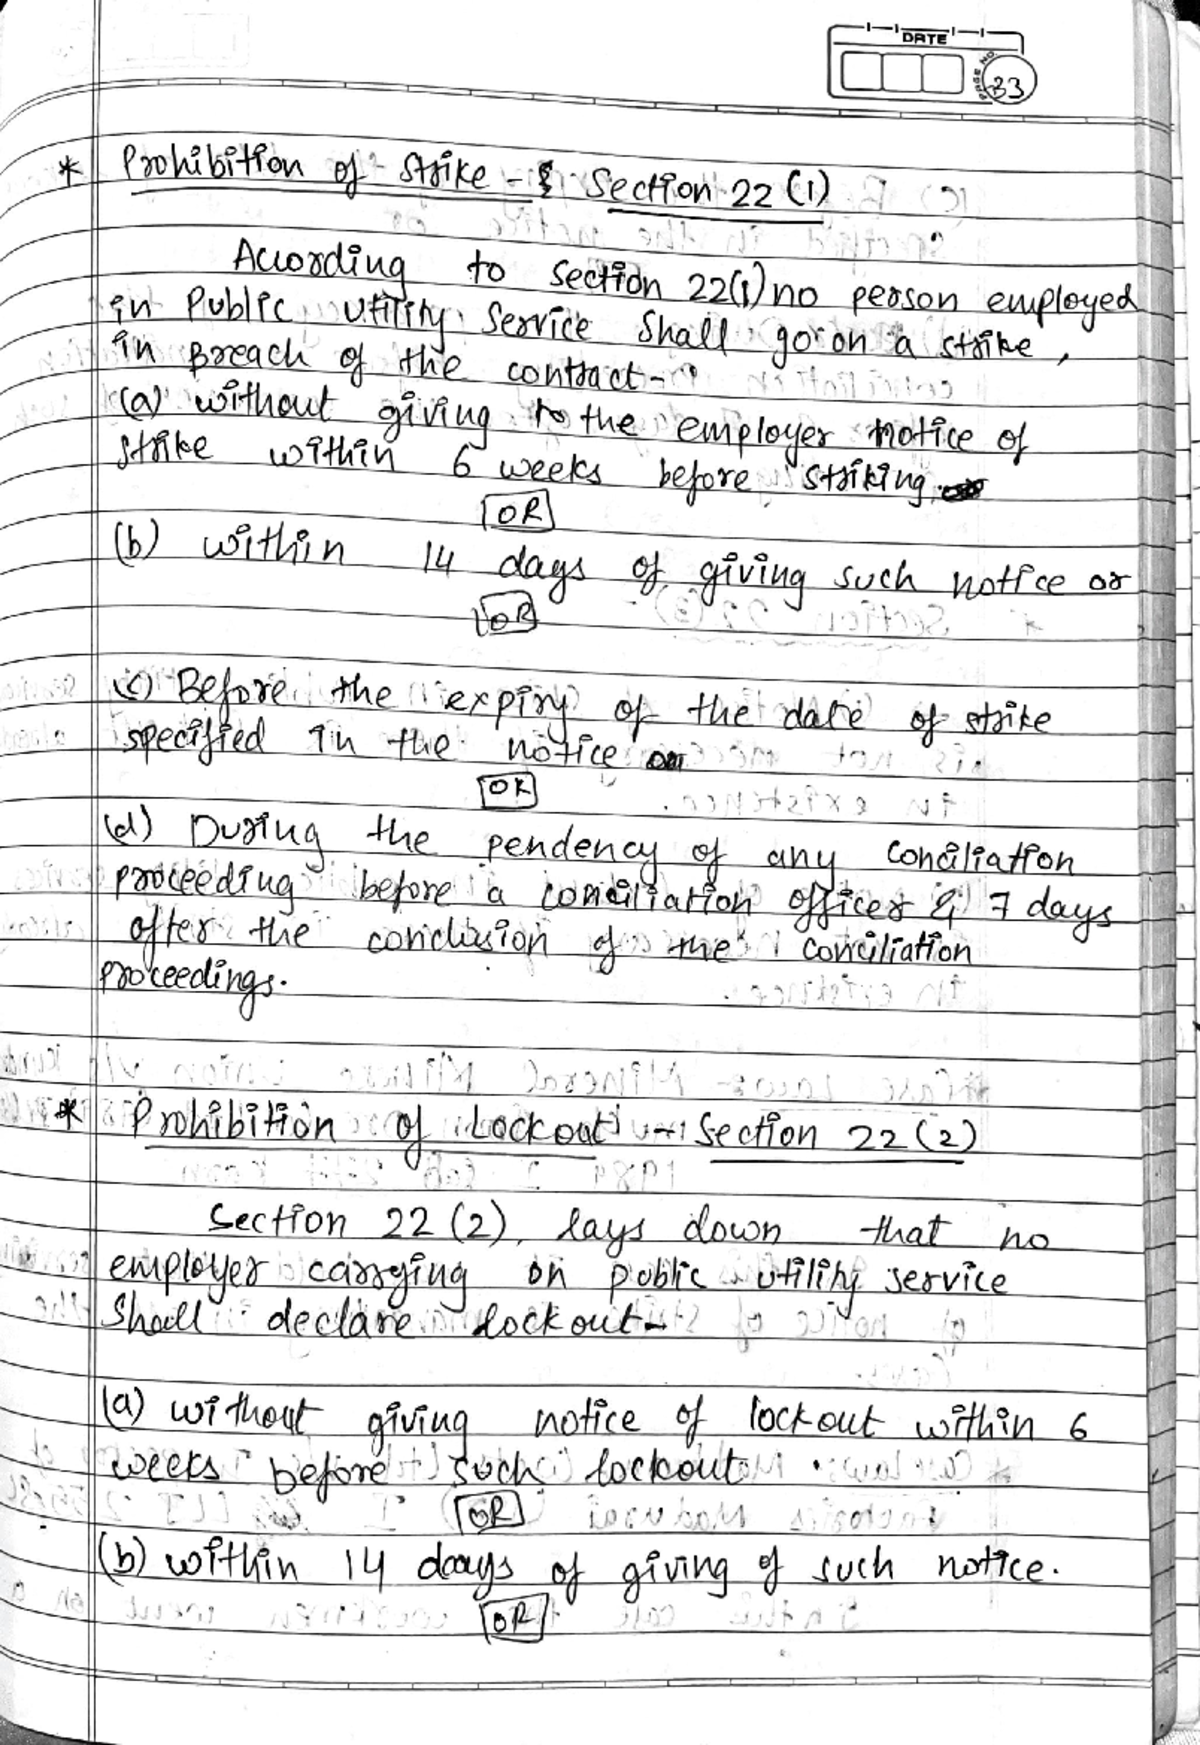 DATE
PAGE NO. 33
* Prohibition of Strike - Section 22 (1)
According to section 22(1) no person employed
in Public utility service shall go on a strike,
in Breach of the contract -
(a) without giving to the employer notice of
strike within 6 weeks before striking.
OR
(b) within 14 days of giving such notice or
OR
(c) Before the expiry of the date of strike
specified in the notice
OR
(d) During the pendency of any conciliation
proceeding before a conciliation officer & 7 days
after the conclusion of the conciliation
proceedings.
* Prohibition of Lockout - Section 22 (2)
Section 22 (2), lays down that no
employer carrying on public utility service
Shall declare lockout -
(a) without giving notice of lockout within 6
weeks before such lockout
OR
(b) within 14 days of giving of such notice.
OR